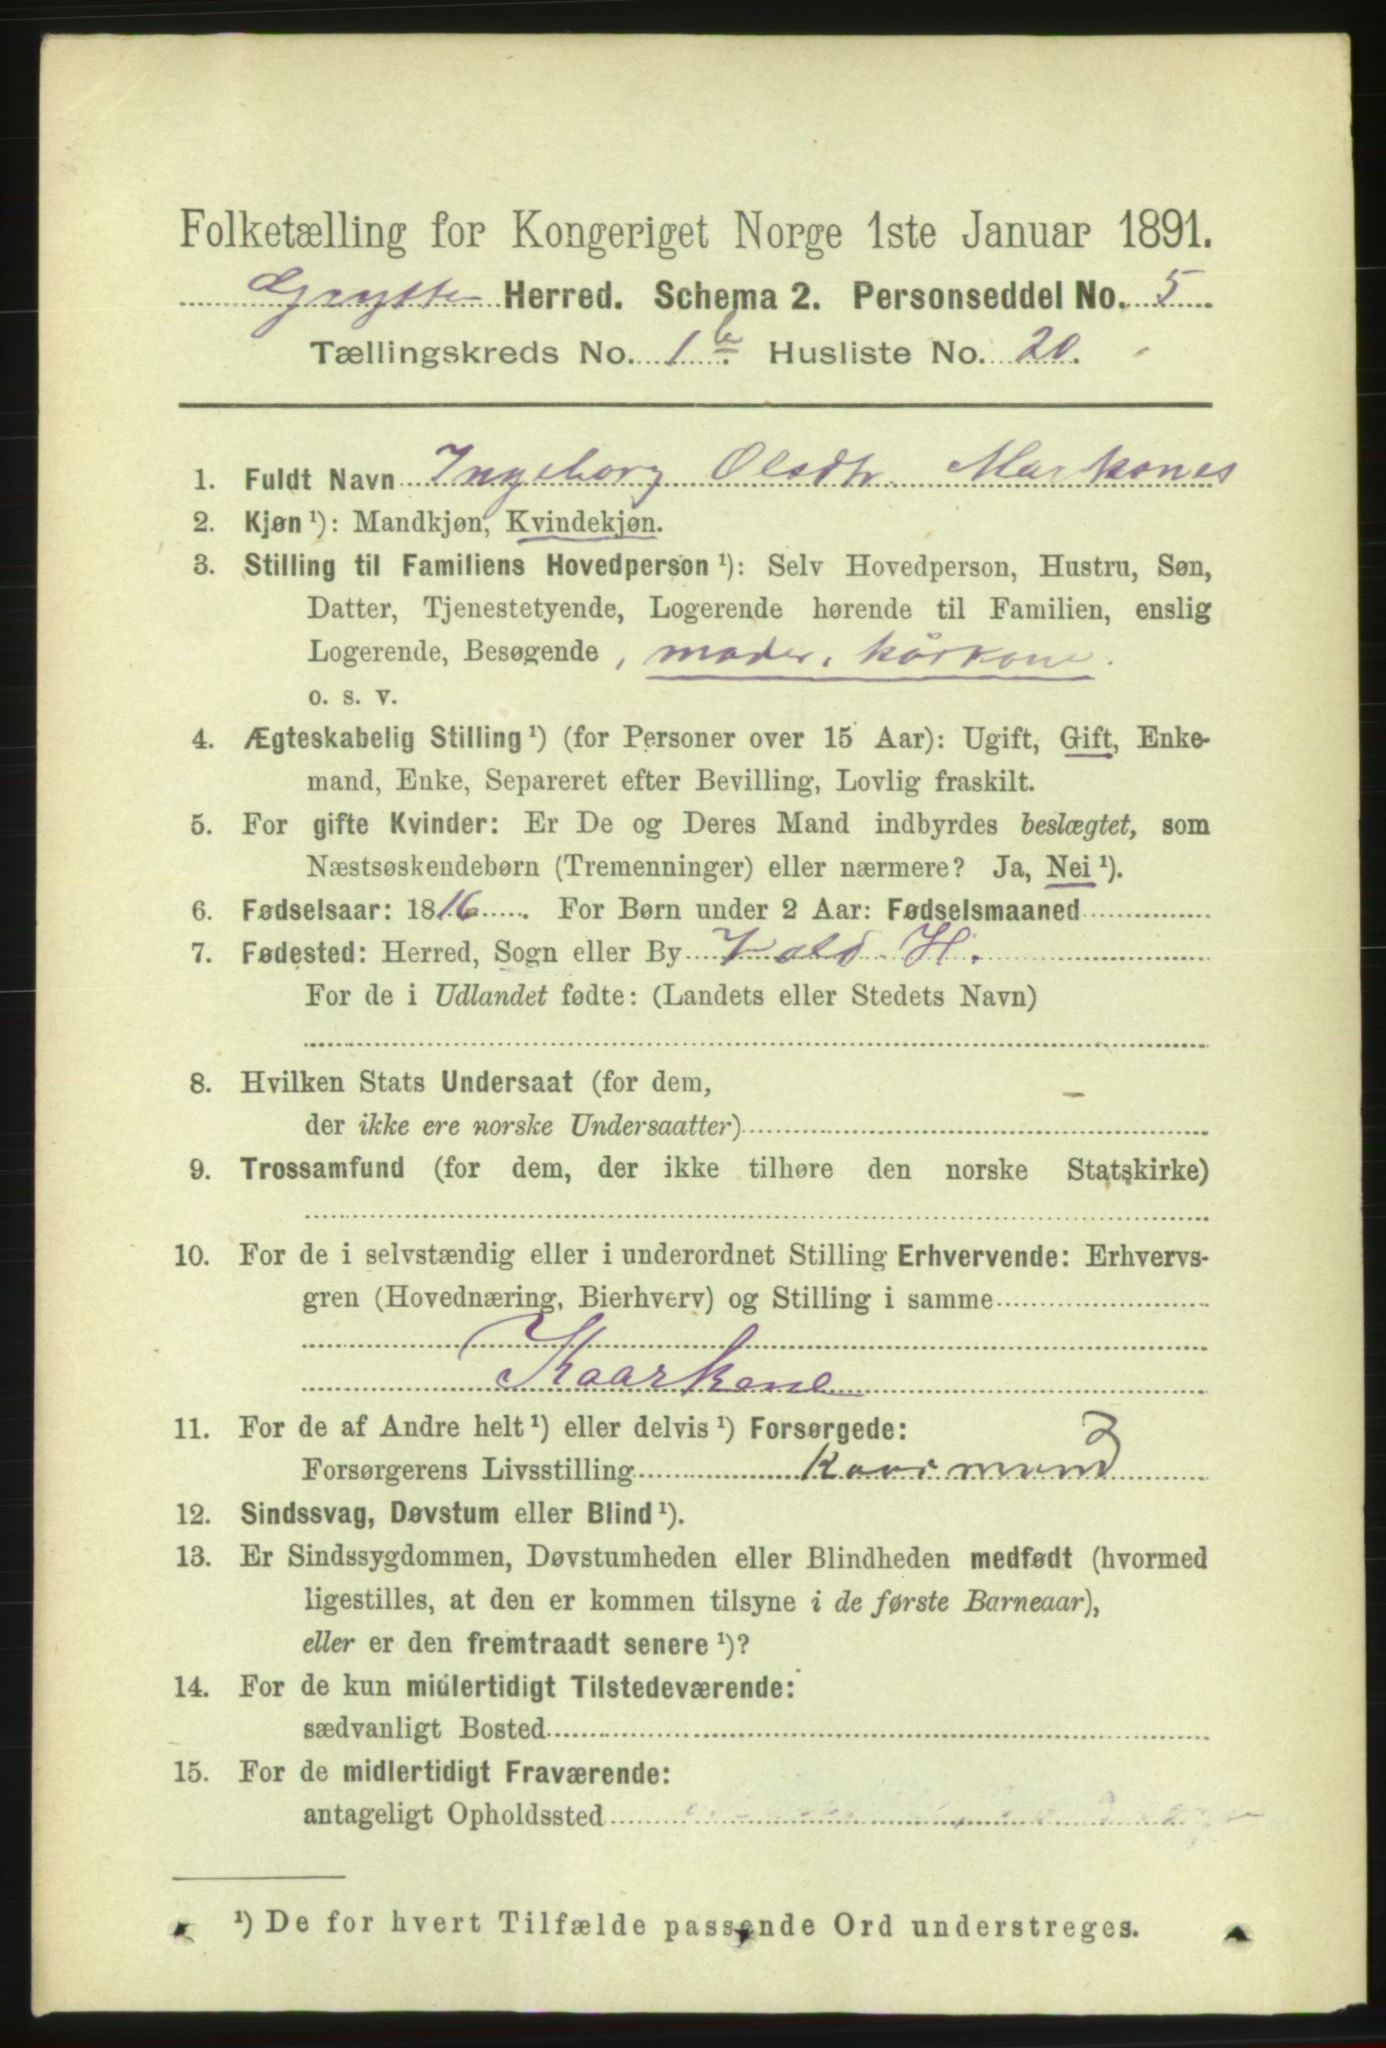 Folketælling for Kongeriget Norge 1ste Januar 1891.
Grytten Herred. Schema 2. Personseddel No. 5
Tællingskreds No. 1 b. Husliste No. 20.
1. Fuldt Navn Ingeborg Olsdtr. Markones
2. Kjøn ¹): Mandkjøn, Kvindekjøn.
3. Stilling til Familiens Hovedperson ¹): Selv Hovedperson, Hustru, Søn,
Datter, Tjenestetyende, Logerende hørende til Familien, enslig
Logerende, Besøgende, moder, kårkone.
o. s. v.
4. Ægteskabelig Stilling ¹) (for Personer over 15 Aar): Ugift, Gift, Enke-
mand, Enke, Separeret efter Bevilling, Lovlig fraskilt.
5. For gifte Kvinder: Er De og Deres Mand indbyrdes beslægtet, som
Næstsøskendebørn (Tremenninger) eller nærmere? Ja, Nei ¹).
6. Fødselsaar: 1816. For Børn under 2 Aar: Fødselsmaaned
7. Fødested: Herred, Sogn eller By Vold H.
For de i Udlandet fødte: (Landets eller Stedets Navn)
8. Hvilken Stats Undersaat (for dem,
der ikke ere norske Undersaatter)
9. Trossamfund (for dem, der ikke tilhøre den norske Statskirke)
10. For de i selvstændig eller i underordnet Stilling Erhvervende: Erhvervs-
gren (Hovednæring, Bierhverv) og Stilling i samme
Kaarkone
11. For de af Andre helt ¹) eller delvis ¹) Forsørgede:
Forsørgerens Livsstilling Kaarmand
12. Sindssvag, Døvstum eller Blind ¹).
13. Er Sindssygdommen, Døvstumheden eller Blindheden medfødt (hvormed
ligestilles, at den er kommen tilsyne i de første Barneaar),
eller er den fremtraadt senere ¹)?
14. For de kun midlertidigt Tilstedeværende:
sædvanligt Bosted
15. For de midlertidigt Fraværende:
antageligt Opholdssted
¹) De for hvert Tilfælde passende Ord understreges.